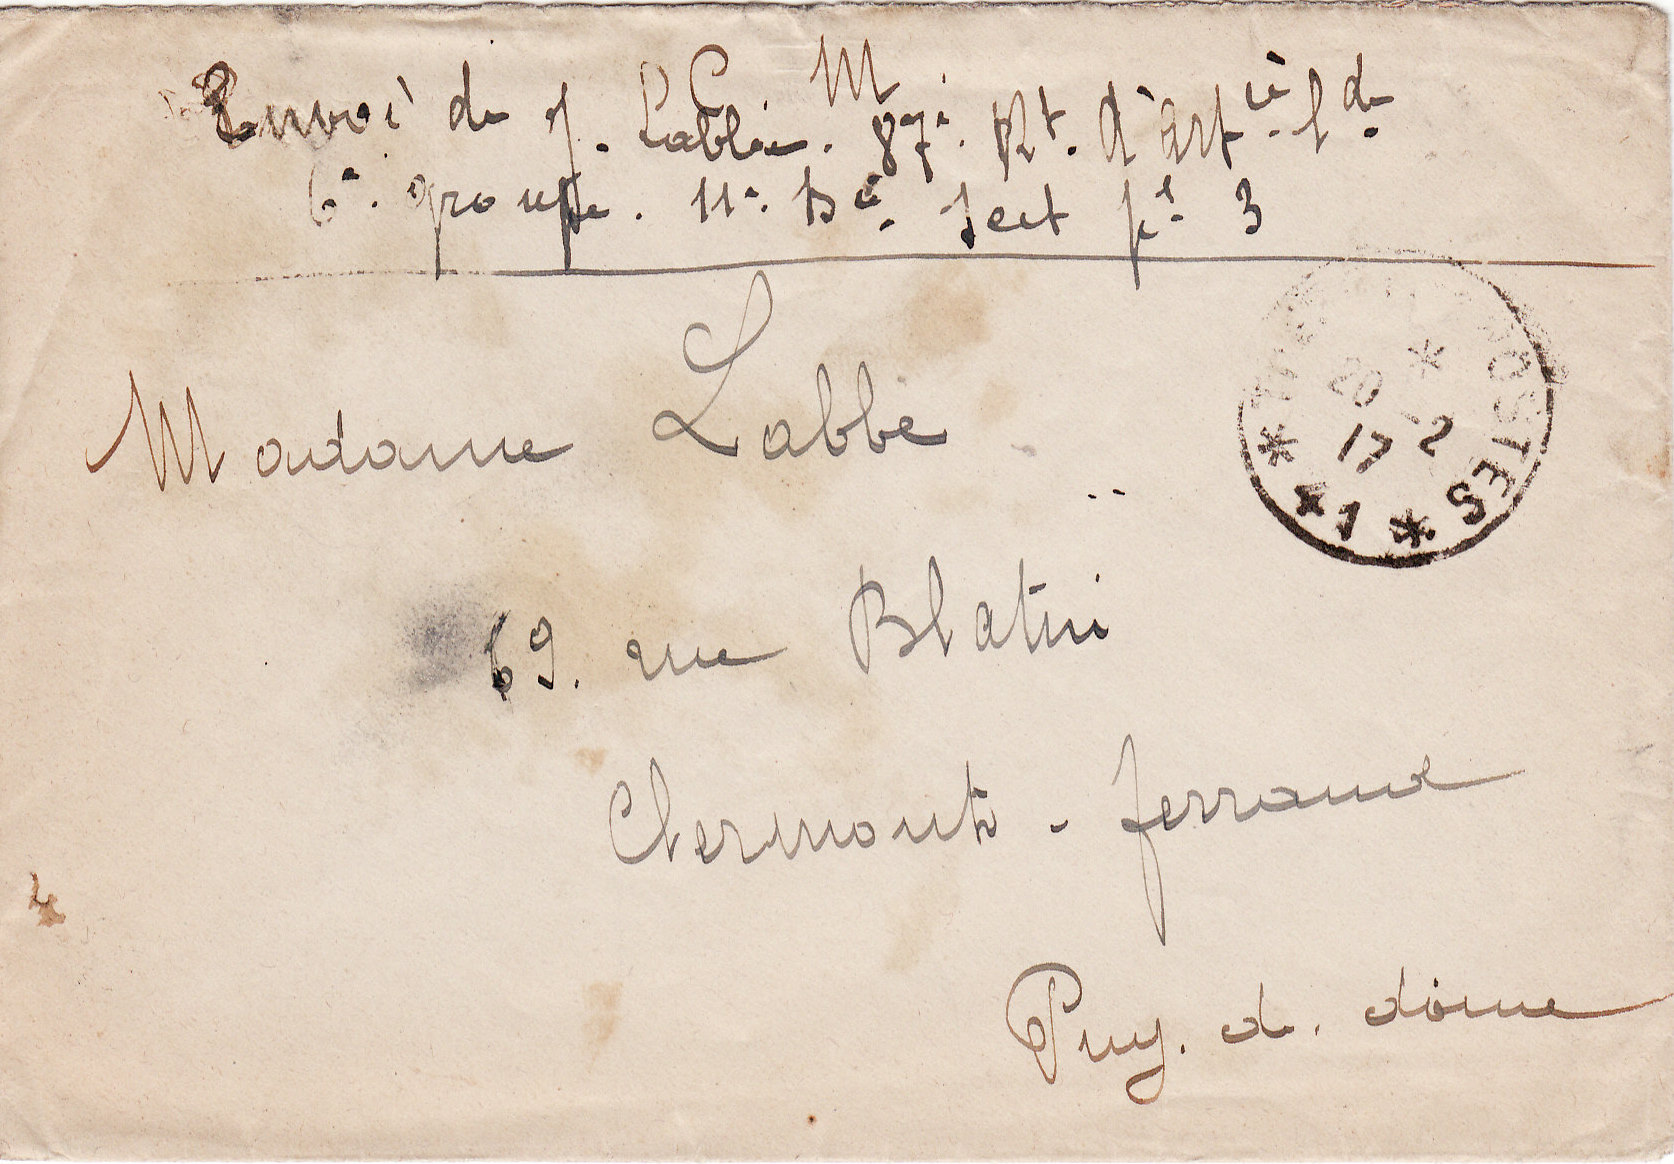 Envoi de J. Labbé. M 87e. Rt. d'Artie. Lde.
6e. groupe. 11e. Bie. Sect pal 3
Madame Labbé
69. rue Blatin
Clermont-Ferrand
Puy. de. dôme
POSTES
* 20 -2 17 *
* 41 *